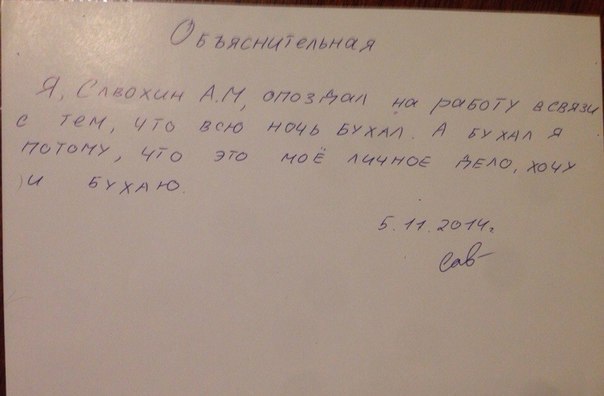 Объяснительная
Я, Савохин А.М, опоздал на работу в связи
с тем, что всю ночь бухал. А бухал я
потому, что это моё личное дело, хочу
и бухаю.
5.11.2014г.
Сав